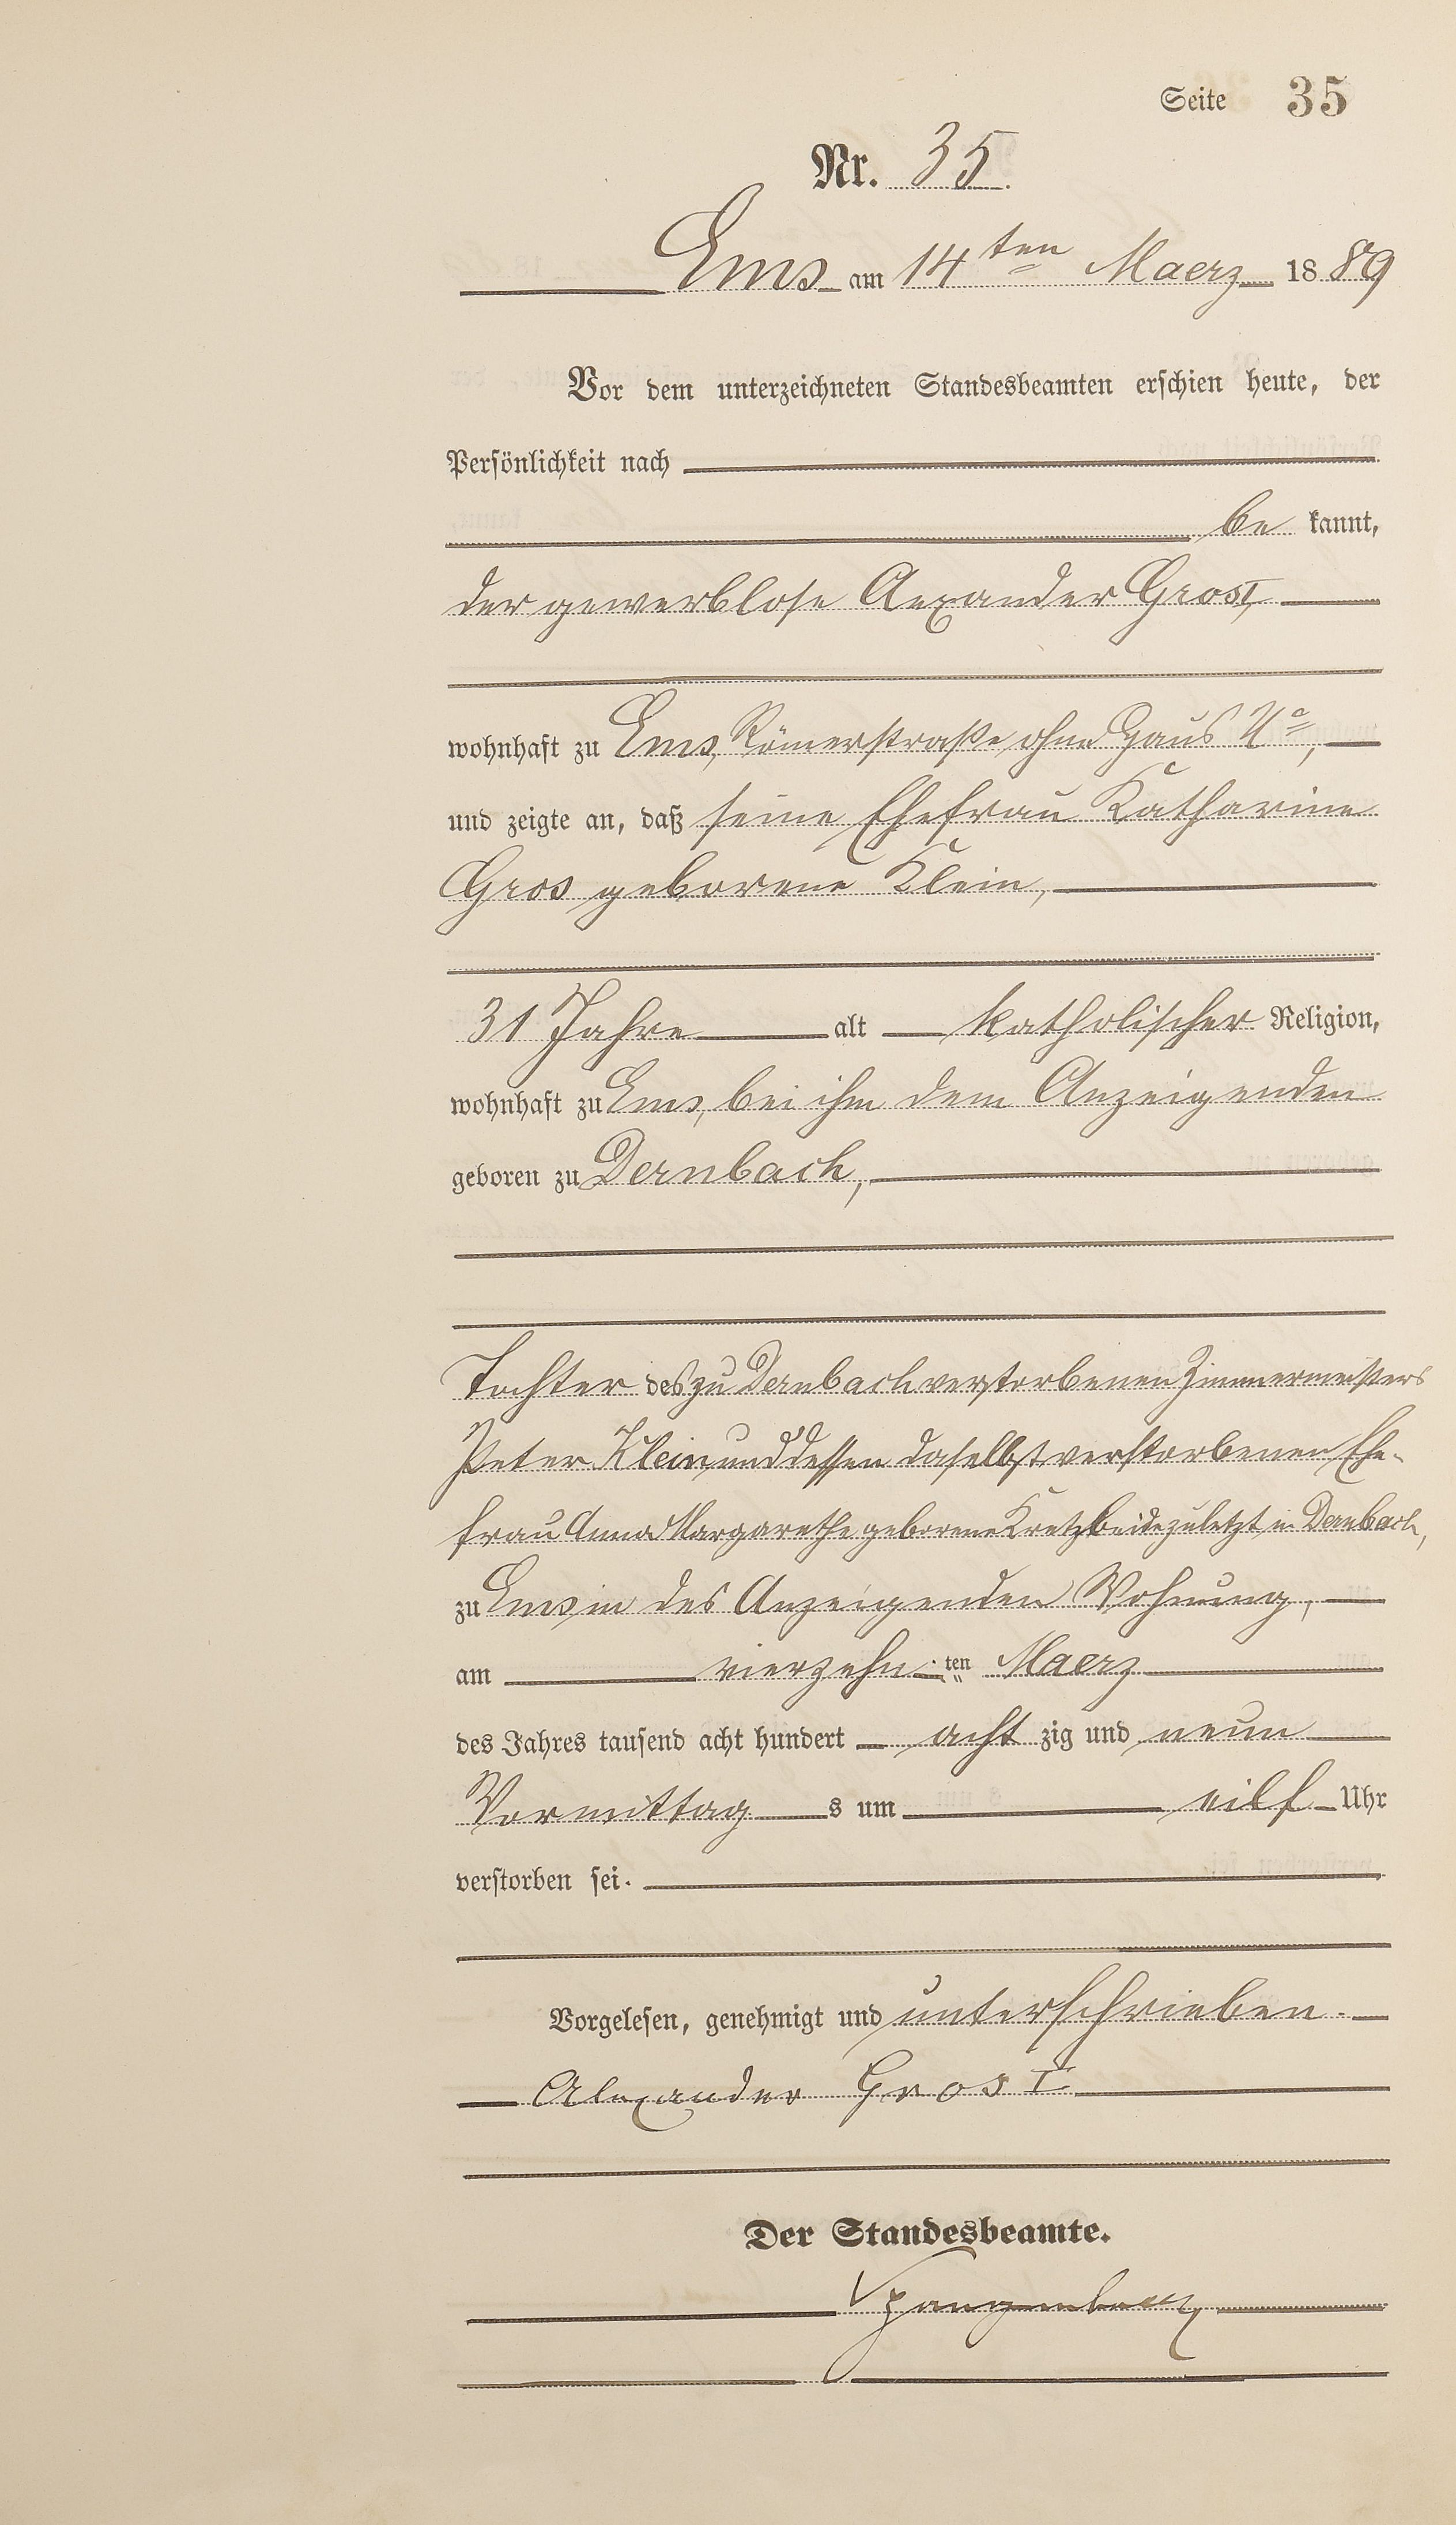 Seite 35
Nr. 35.
Ems am 14ten Maerz 1889
Vor dem unterzeichneten Standesbeamten erschien heute, der
Persönlichkeit nach
be kannt,
der gewerblose Aexander Gros I,
wohnhaft zu Ems, Römerstraße ohne Haus No,
und zeigte an, daß seine Ehefrau Katharine
Gros geborene Klein,
31 Jahre alt katholischer Religion,
wohnhaft zu Ems, bei ihm dem Anzeigenden
geboren zu Dernbach,
Tochter des zu Dernbach verstorbenen Zimmermeisters
Peter Klein und dessen daselbst verstorbenen Ehe-
frau Anna Margarethe geborene Kretz beide zuletzt in Dernbach,
zu Ems in des Anzeigenden Wohnung,
am vierzehn ten Maerz
des Jahres tausend acht hundert acht zig und neun
Vormittag s um eilf Uhr
verstorben sei.
Vorgelesen, genehmigt und unterschrieben.
Alexander Gros I
Der Standesbeamte.
Spangenberg